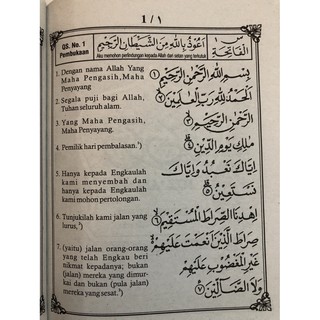 1 / ١
QS. No. 1
Pembukaan
أَعُوْذُ بِاللّٰهِ مِنَ الشَّيْطَانِ الرَّجِيْمِ
Aku memohon perlindungan kepada Allah dari setan yang terkutuk
الفَاتِحَة
1. Dengan nama Allah Yang
Maha Pengasih, Maha
Penyayang
بِسْمِ اللّٰهِ الرَّحْمٰنِ الرَّحِيْمِ ﴿١﴾
2. Segala puji bagi Allah,
Tuhan seluruh alam.
اَلْحَمْدُ لِلّٰهِ رَبِّ الْعٰلَمِيْنَ ﴿٢﴾
3. Yang Maha Pengasih, Maha
Penyayang.
الرَّحْمٰنِ الرَّحِيْمِ ﴿٣﴾
4. Pemilik hari pembalasan.¹)
مٰلِكِ يَوْمِ الدِّيْنِ ﴿٤﴾
5. Hanya kepada Engkaulah
kami menyembah dan
hanya kepada Engkaulah
kami mohon pertolongan.
اِيَّاكَ نَعْبُدُ وَاِيَّاكَ
نَسْتَعِيْنُ ﴿٥﴾
6. Tunjukilah kami jalan yang
lurus,
اِهْدِنَا الصِّرَاطَ الْمُسْتَقِيْمَ ﴿٦﴾
7. (yaitu) jalan orang-orang
yang telah Engkau beri
nikmat kepadanya; bukan
(jalan) mereka yang dimur-
kai dan bukan (pula jalan)
mereka yang sesat.
صِرَاطَ الَّذِيْنَ اَنْعَمْتَ عَلَيْهِمْ
غَيْرِ الْمَغْضُوْبِ عَلَيْهِمْ
وَلَا الضَّآلِّيْنَ ﴿٧﴾